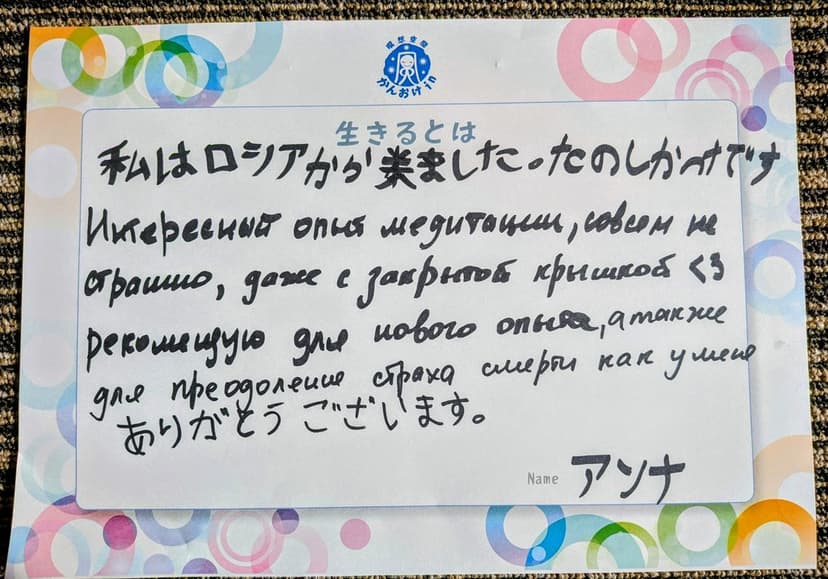 瞑想空間
かんおけin
生きるとは
私はロシアから来ました。たのしかったです
Интересный опыт медитации, совсем не
страшно, даже с закрытой крышкой <3
рекомендую для нового опыта, а также
для преодоление страха смерти как у меня
ありがとうございます。
Name アンナ